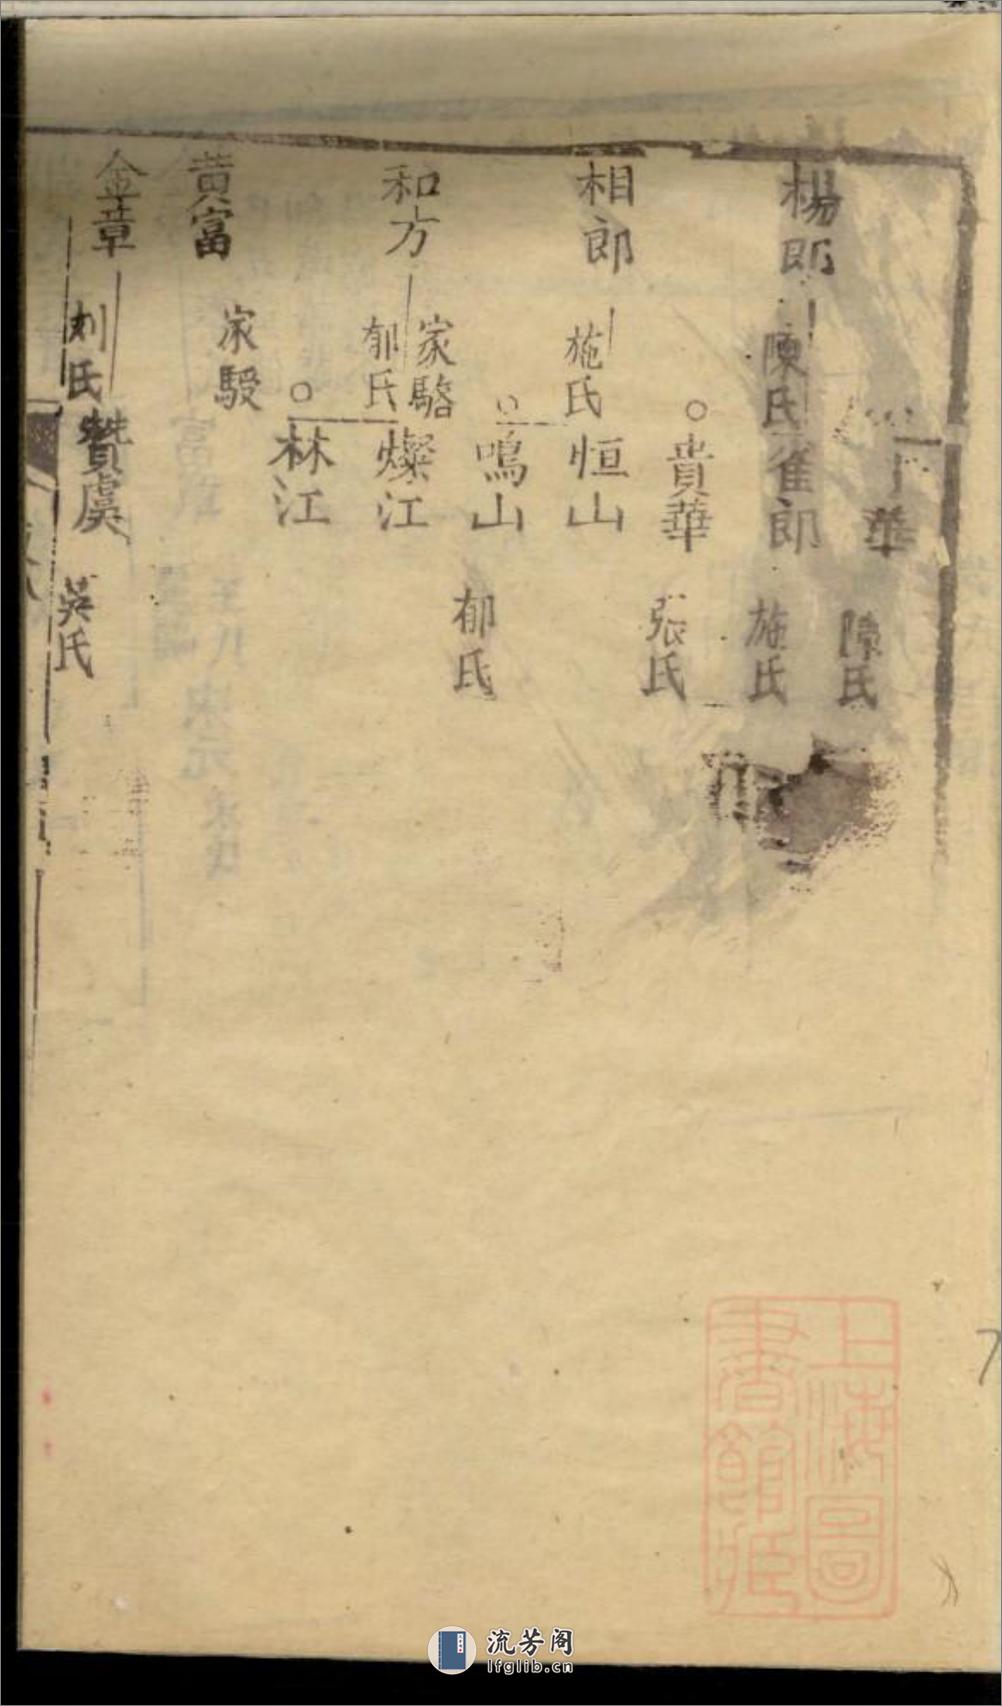 華
陳氏
楊郎
陳氏
雀郎
施氏
貴華
張氏
相郎
施氏
恒山
鳴山
郁氏
和方
家駱
郁氏
燦江
林江
黄富
家駸
金章
刘氏
贊虞
吳氏
上海圖
書館藏
7
流芳阁
lfglib.cn